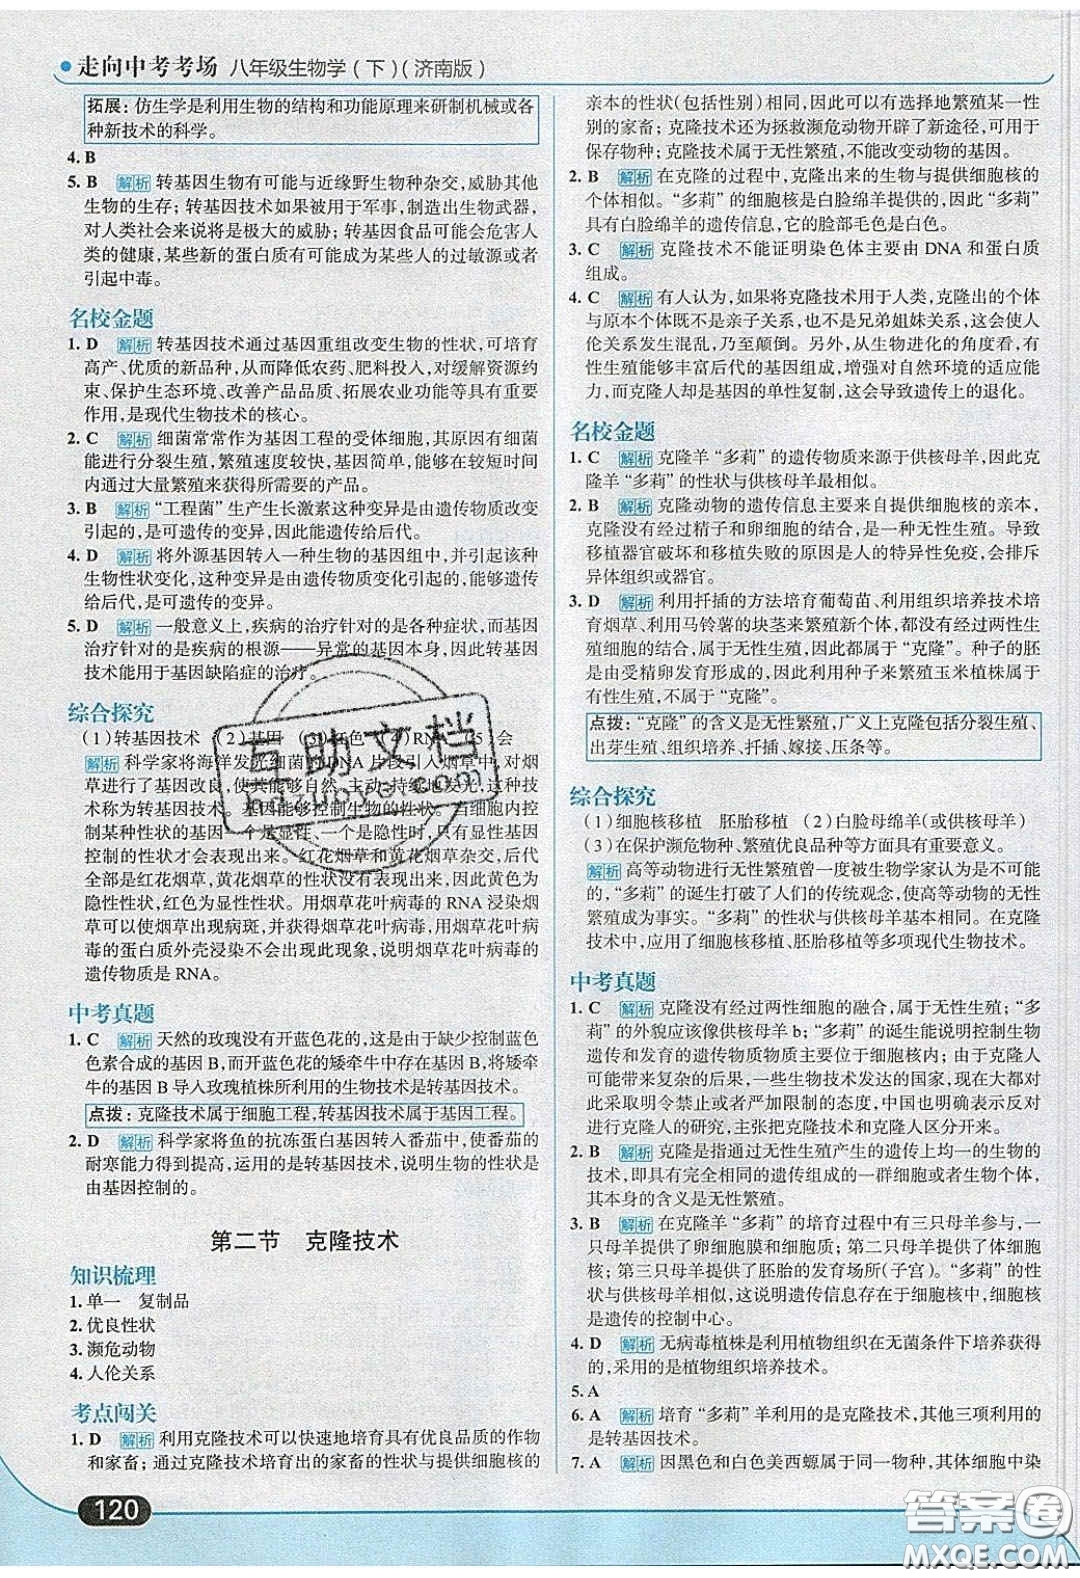 走向中考考场 八年级生物学(下)(济南版)
拓展:仿生学是利用生物的结构和功能原理来研制机械或各
种新技术的科学。
4. B
5. B 解析 转基因生物有可能与近缘野生物种杂交,威胁其他
生物的生存;转基因技术如果被用于军事,制造出生物武器,
对人类社会来说将是极大的威胁;转基因食品可能会危害人
类的健康,某些新的蛋白质有可能成为某些人的过敏源或者
引起中毒。
名校金题
1. D 解析 转基因技术通过基因重组改变生物的性状,可培育
高产、优质的新品种,从而降低农药、肥料投入,对缓解资源约
束、保护生态环境、改善产品品质、拓展农业功能等具有重要
作用,是现代生物技术的核心。
2. C 解析 细菌常常作为基因工程的受体细胞,其原因有细菌
能进行分裂生殖,繁殖速度较快,基因简单,能够在较短时间
内通过大量繁殖来获得所需要的产品。
3. B 解析 “工程菌”生产生长激素这种变异是由遗传物质改变
引起的,是可遗传的变异,因此能遗传给后代。
4. D 解析 将外源基因转入一种生物的基因组中,并引起该种
生物性状变化,这种变异是由遗传物质变化引起的,能够遗传
给后代,是可遗传的变异。
5. D 解析 一般意义上,疾病的治疗针对的是各种症状,而基因
治疗针对的是疾病的根源——异常的基因本身,因此转基因
技术能用于基因缺陷症的治疗。
综合探究
(1)转基因技术 (2)基因 (3)红色 (4)RNA (5)会
解析 科学家将海洋发光细菌的DNA片段引入烟草中,对烟
草进行了基因改良,使其能够自然、主动、持续地发光,这种技
术称为转基因技术。基因能够控制生物的性状。当细胞内控
制某种性状的基因一个是显性、一个是隐性时,只有显性基因
控制的性状才会表现出来。红花烟草和黄花烟草杂交,后代
全部是红花烟草,黄花烟草的性状没有表现出来,因此黄色为
隐性性状,红色为显性性状。用烟草花叶病毒的RNA浸染烟
草可以使烟草出现病斑,并获得烟草花叶病毒,用烟草花叶病
毒的蛋白质外壳浸染不会出现此现象,说明烟草花叶病毒的
遗传物质是RNA。
中考真题
1. C 解析 天然的玫瑰没有开蓝色花的,这是由于缺少控制蓝色
色素合成的基因B,而开蓝色花的矮牵牛中存在基因B,将矮牵
牛的基因B导入玫瑰植株所利用的生物技术是转基因技术。
点拨:克隆技术属于细胞工程,转基因技术属于基因工程。
2. D 解析 科学家将鱼的抗冻蛋白基因转入番茄中,使番茄的
耐寒能力得到提高,运用的是转基因技术,说明生物的性状是
由基因控制的。
第二节 克隆技术
知识梳理
1. 单一 复制品
2. 优良性状
3. 濒危动物
4. 人伦关系
考点闯关
1. D 解析 利用克隆技术可以快速地培育具有优良品质的作物
和家畜;通过克隆技术培育出的家畜的性状与提供细胞核的
120
亲本的性状(包括性别)相同,因此可以有选择地繁殖某一性
别的家畜;克隆技术还为拯救濒危动物开辟了新途径,可用于
保存物种;克隆技术属于无性繁殖,不能改变动物的基因。
2. B 解析 在克隆的过程中,克隆出来的生物与提供细胞核的
个体相似。“多莉”的细胞核是白脸绵羊提供的,因此“多莉”
具有白脸绵羊的遗传信息,它的脸部毛色是白色。
3. C 解析 克隆技术不能证明染色体主要由DNA和蛋白质
组成。
4. C 解析 有人认为,如果将克隆技术用于人类,克隆出的个体
与原本个体既不是亲子关系,也不是兄弟姐妹关系,这会使人
伦关系发生混乱,乃至颠倒。另外,从生物进化的角度看,有
性生殖能够丰富后代的基因组成,增强对自然环境的适应能
力,而克隆人则是基因的单性复制,这会导致遗传上的退化。
名校金题
1. C 解析 克隆羊“多莉”的遗传物质来源于供核母羊,因此克
隆羊“多莉”的性状与供核母羊最相似。
2. B 解析 克隆动物的遗传信息主要来自提供细胞核的亲本,
克隆没有经过精子和卵细胞的结合,是一种无性生殖。导致
移植器官破坏和移植失败的原因是人的特异性免疫,会排斥
异体组织或器官。
3. D 解析 利用扦插的方法培育葡萄苗、利用组织培养技术培
育烟草、利用马铃薯的块茎来繁殖新个体,都没有经过两性生
殖细胞的结合,属于无性生殖,因此都属于“克隆”。种子的胚
是由受精卵发育形成的,因此利用种子来繁殖玉米植株属于
有性生殖,不属于“克隆”。
点拨:“克隆”的含义是无性繁殖,广义上克隆包括分裂生殖、
出芽生殖、组织培养、扦插、嫁接、压条等。
综合探究
(1)细胞核移植 胚胎移植 (2)白脸母绵羊(或供核母羊)
(3)在保护濒危物种、繁殖优良品种等方面具有重要意义。
解析 高等动物进行无性繁殖曾一度被生物学家认为是不可能
的,“多莉”的诞生打破了人们的传统观念,使高等动物的无性
繁殖成为事实。“多莉”的性状与供核母羊基本相同。在克隆
技术中,应用了细胞核移植、胚胎移植等多项现代生物技术。
中考真题
1. C 解析 克隆没有经过两性细胞的融合,属于无性生殖;“多
莉”的外貌应该像供核母羊b;“多莉”的诞生能说明控制生物
遗传和发育的遗传物质物质主要位于细胞核内;由于克隆人
可能带来复杂的后果,一些生物技术发达的国家,现在大都对
此采取明令禁止或者严加限制的态度,中国也明确表示反对
进行克隆人的研究,主张把克隆技术和克隆人区分开来。
2. B 解析 克隆是指通过无性生殖产生的遗传上均一的生物的
技术,即具有完全相同的遗传组成的一群细胞或者生物个体,
其本身的含义是无性繁殖。
3. B 解析 在克隆羊“多莉”的培育过程中有三只母羊参与,一
只母羊提供了卵细胞膜和细胞质;第二只母羊提供了体细胞
核;第三只母羊提供了胚胎的发育场所(子宫)。“多莉”的性
状与供核母羊相似,这说明遗传信息存在于细胞核中,细胞核
是遗传的控制中心。
4. D 解析 无病毒植株是利用植物组织在无菌条件下培养获得
的,采用的是植物组织培养技术。
5. A
6. A 解析 培育“多莉”羊利用的是克隆技术,其他三项利用的
是转基因技术。
7. A 解析 因黑色和白色美西螈属于同一物种,其体细胞中染
互助文档
hdzuoye.com
答案圈
MXQE.COM